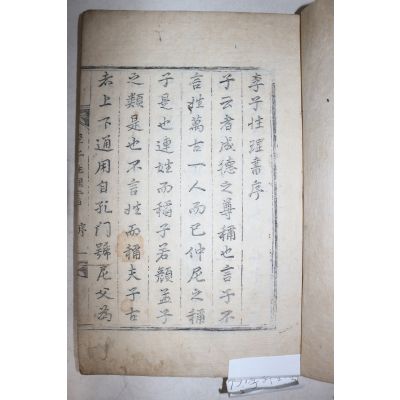 李子性理書序
子云者成德之尊稱也言子不
言姓萬古一人而已仲尼之稱
子是也連姓而稱子若顏孟子
之類是也不言姓而稱夫子古
者上下通用自孔门號尼父為